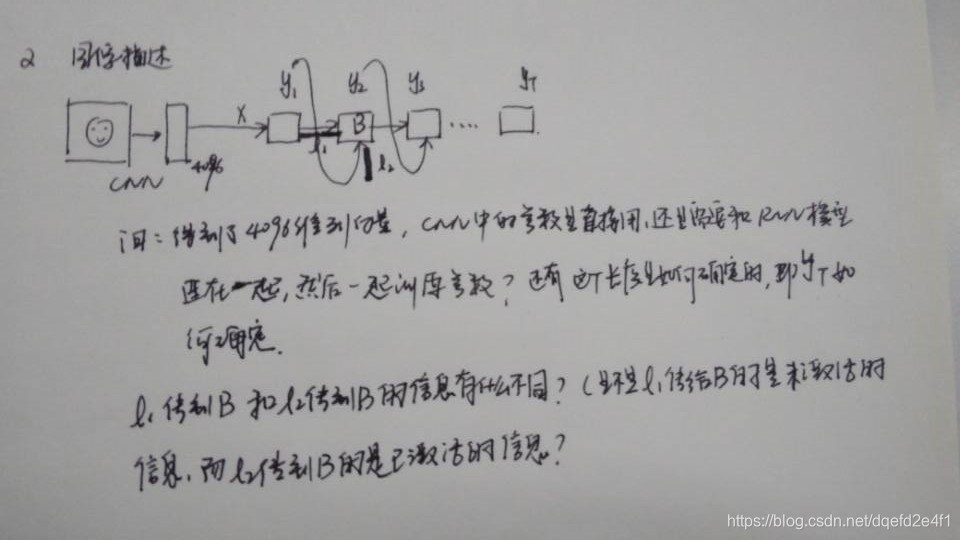 2 图像描述
y₁ y₂ y₃ yT
X B ....
l₁ l₂
CNN 4096
问：得到了4096维到向量，CNN中的参数是直接用，还是需要和RNN模型
连在一起，然后一起训练参数？还有这T长度是如何确定的，即yT如
何确定.
l₁传到B和l₂传到B的信息有什么不同？（是不是l₁传给B的是未激活的
信息，而l₂传到B的是已激活的信息？
https://blog.csdn.net/dqefd2e4f1